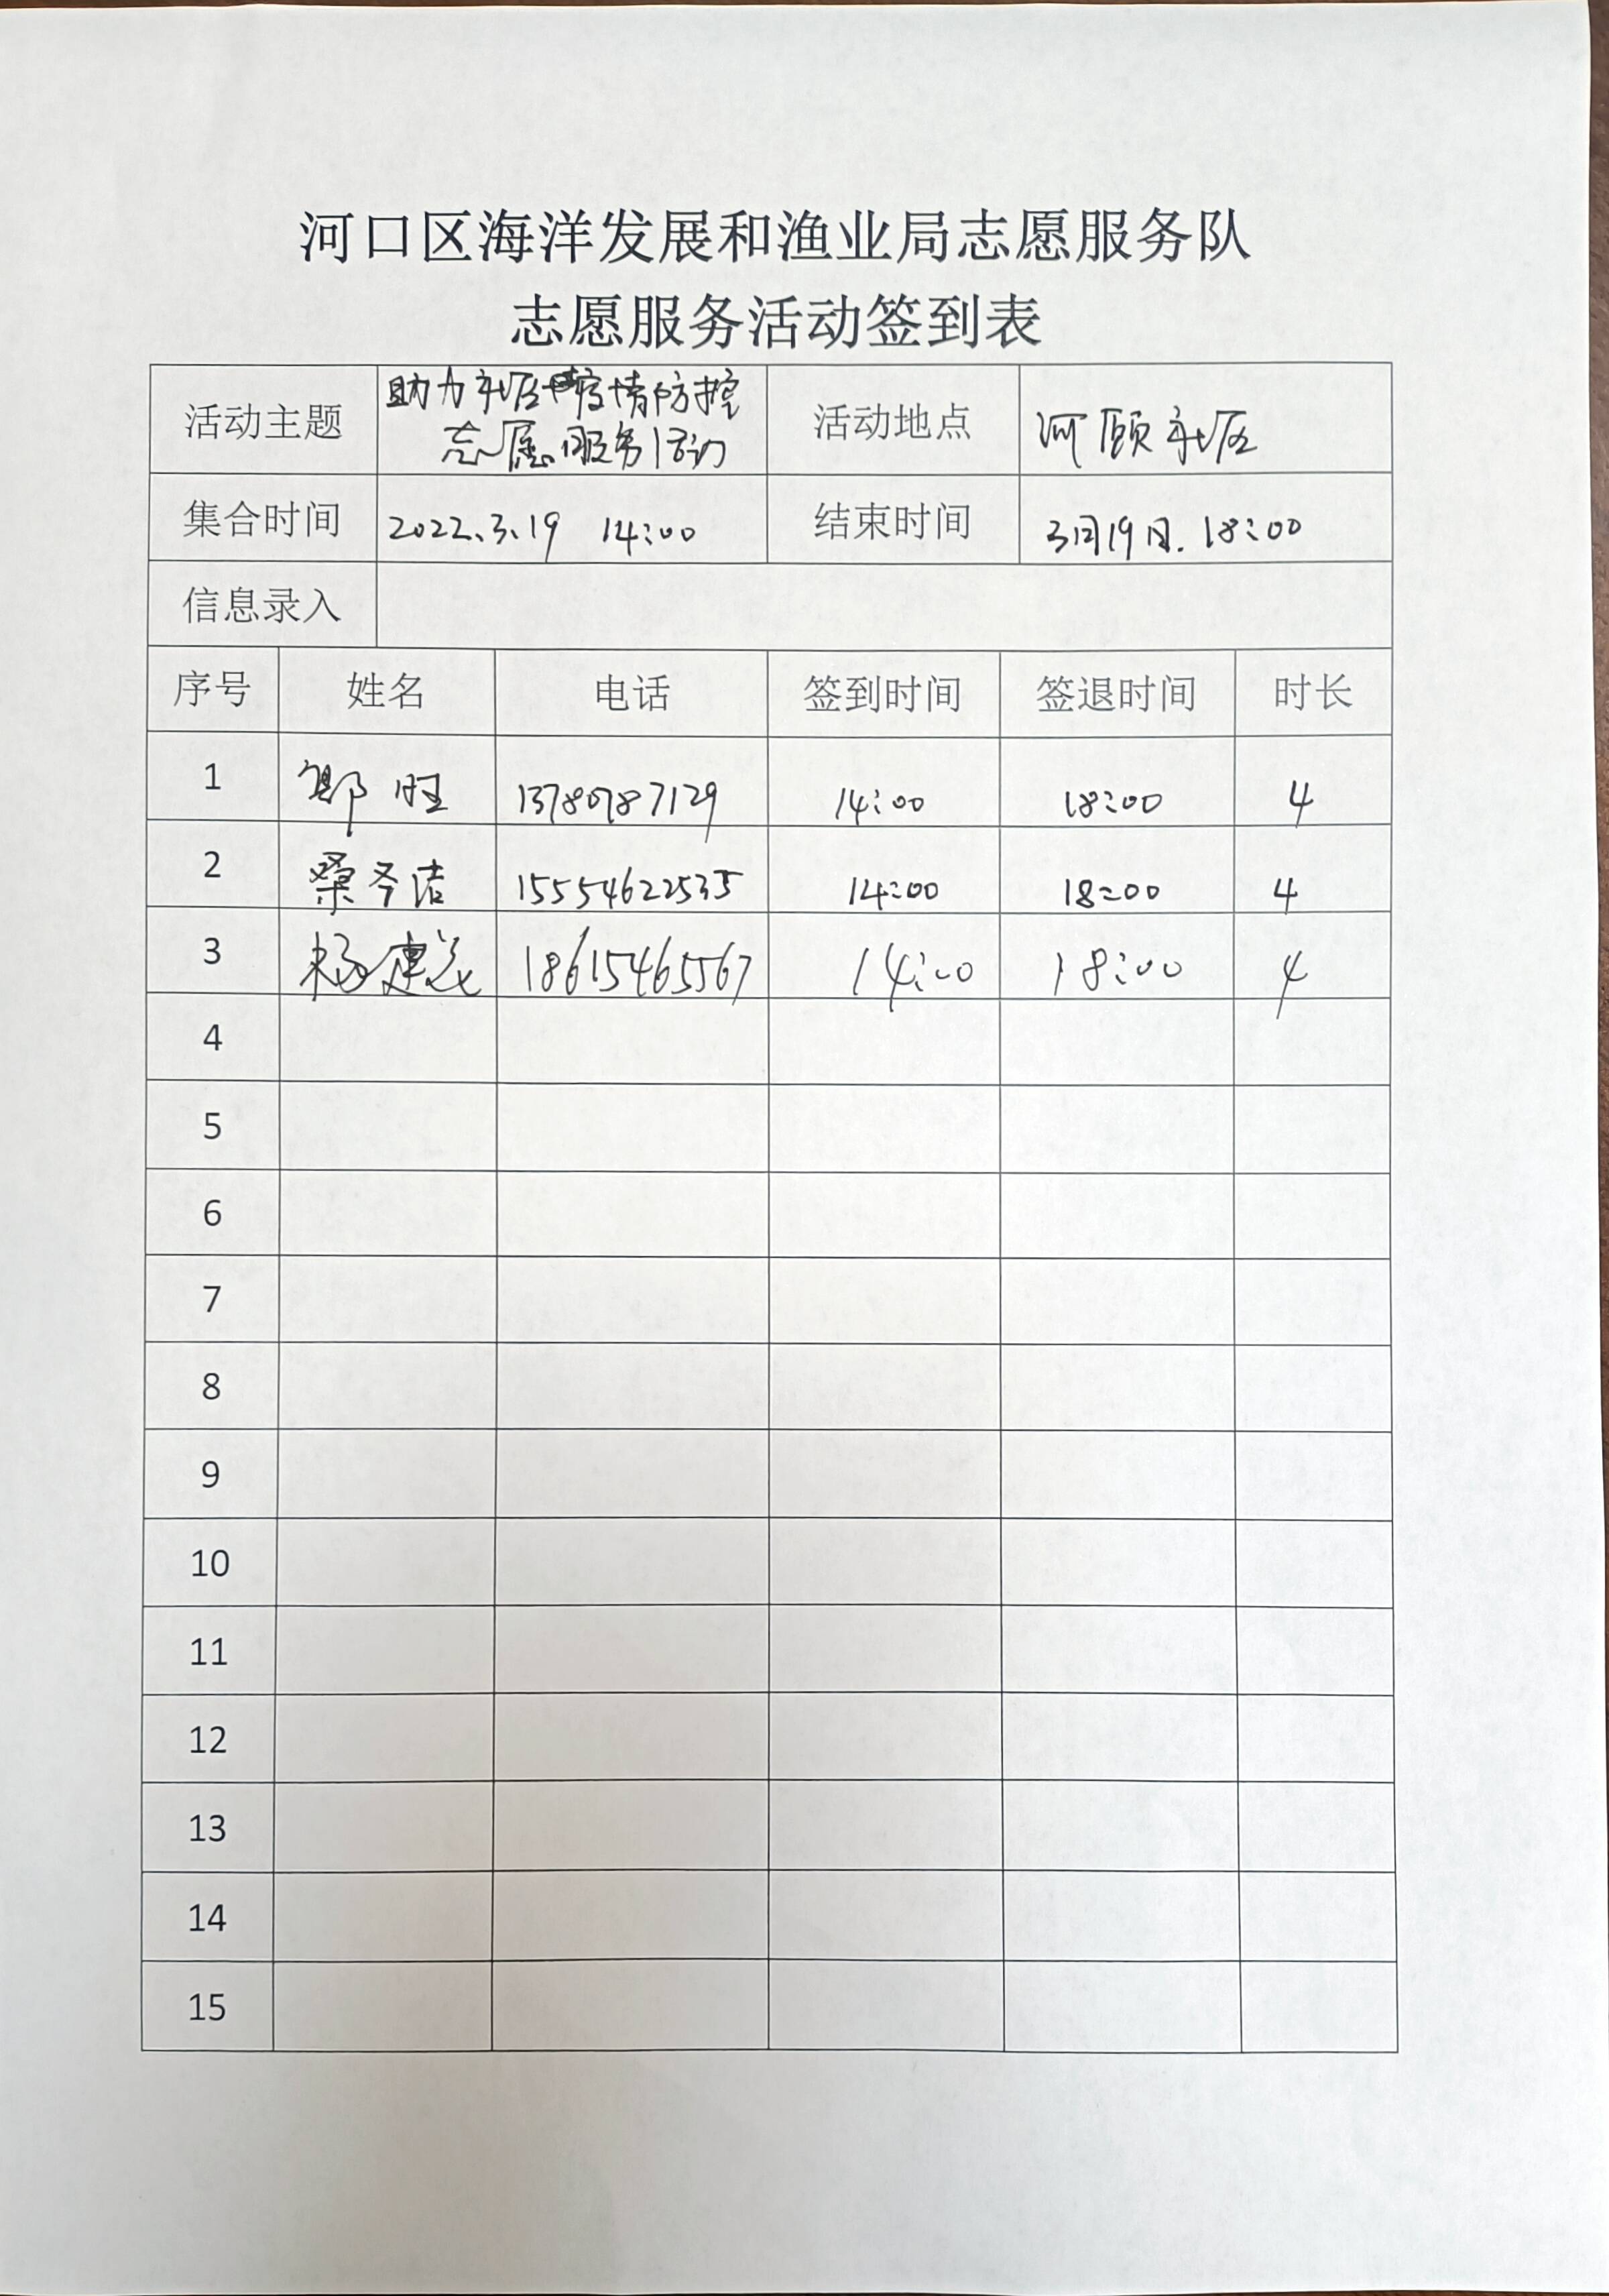 河口区海洋发展和渔业局志愿服务队
志愿服务活动签到表
活动主题 助力社区疫情防控 活动地点 河颐社区
志愿服务活动
集合时间 2022.3.19 14:00 结束时间 3月19日. 18:00
信息录入
序号 姓名 电话 签到时间 签退时间 时长
1 旺 13780787129 14:00 18:00 4
2 桑冬洁 15554622535 14:00 18:00 4
3 杨建 18615465567 14:00 18:00 4
4
5
6
7
8
9
10
11
12
13
14
15